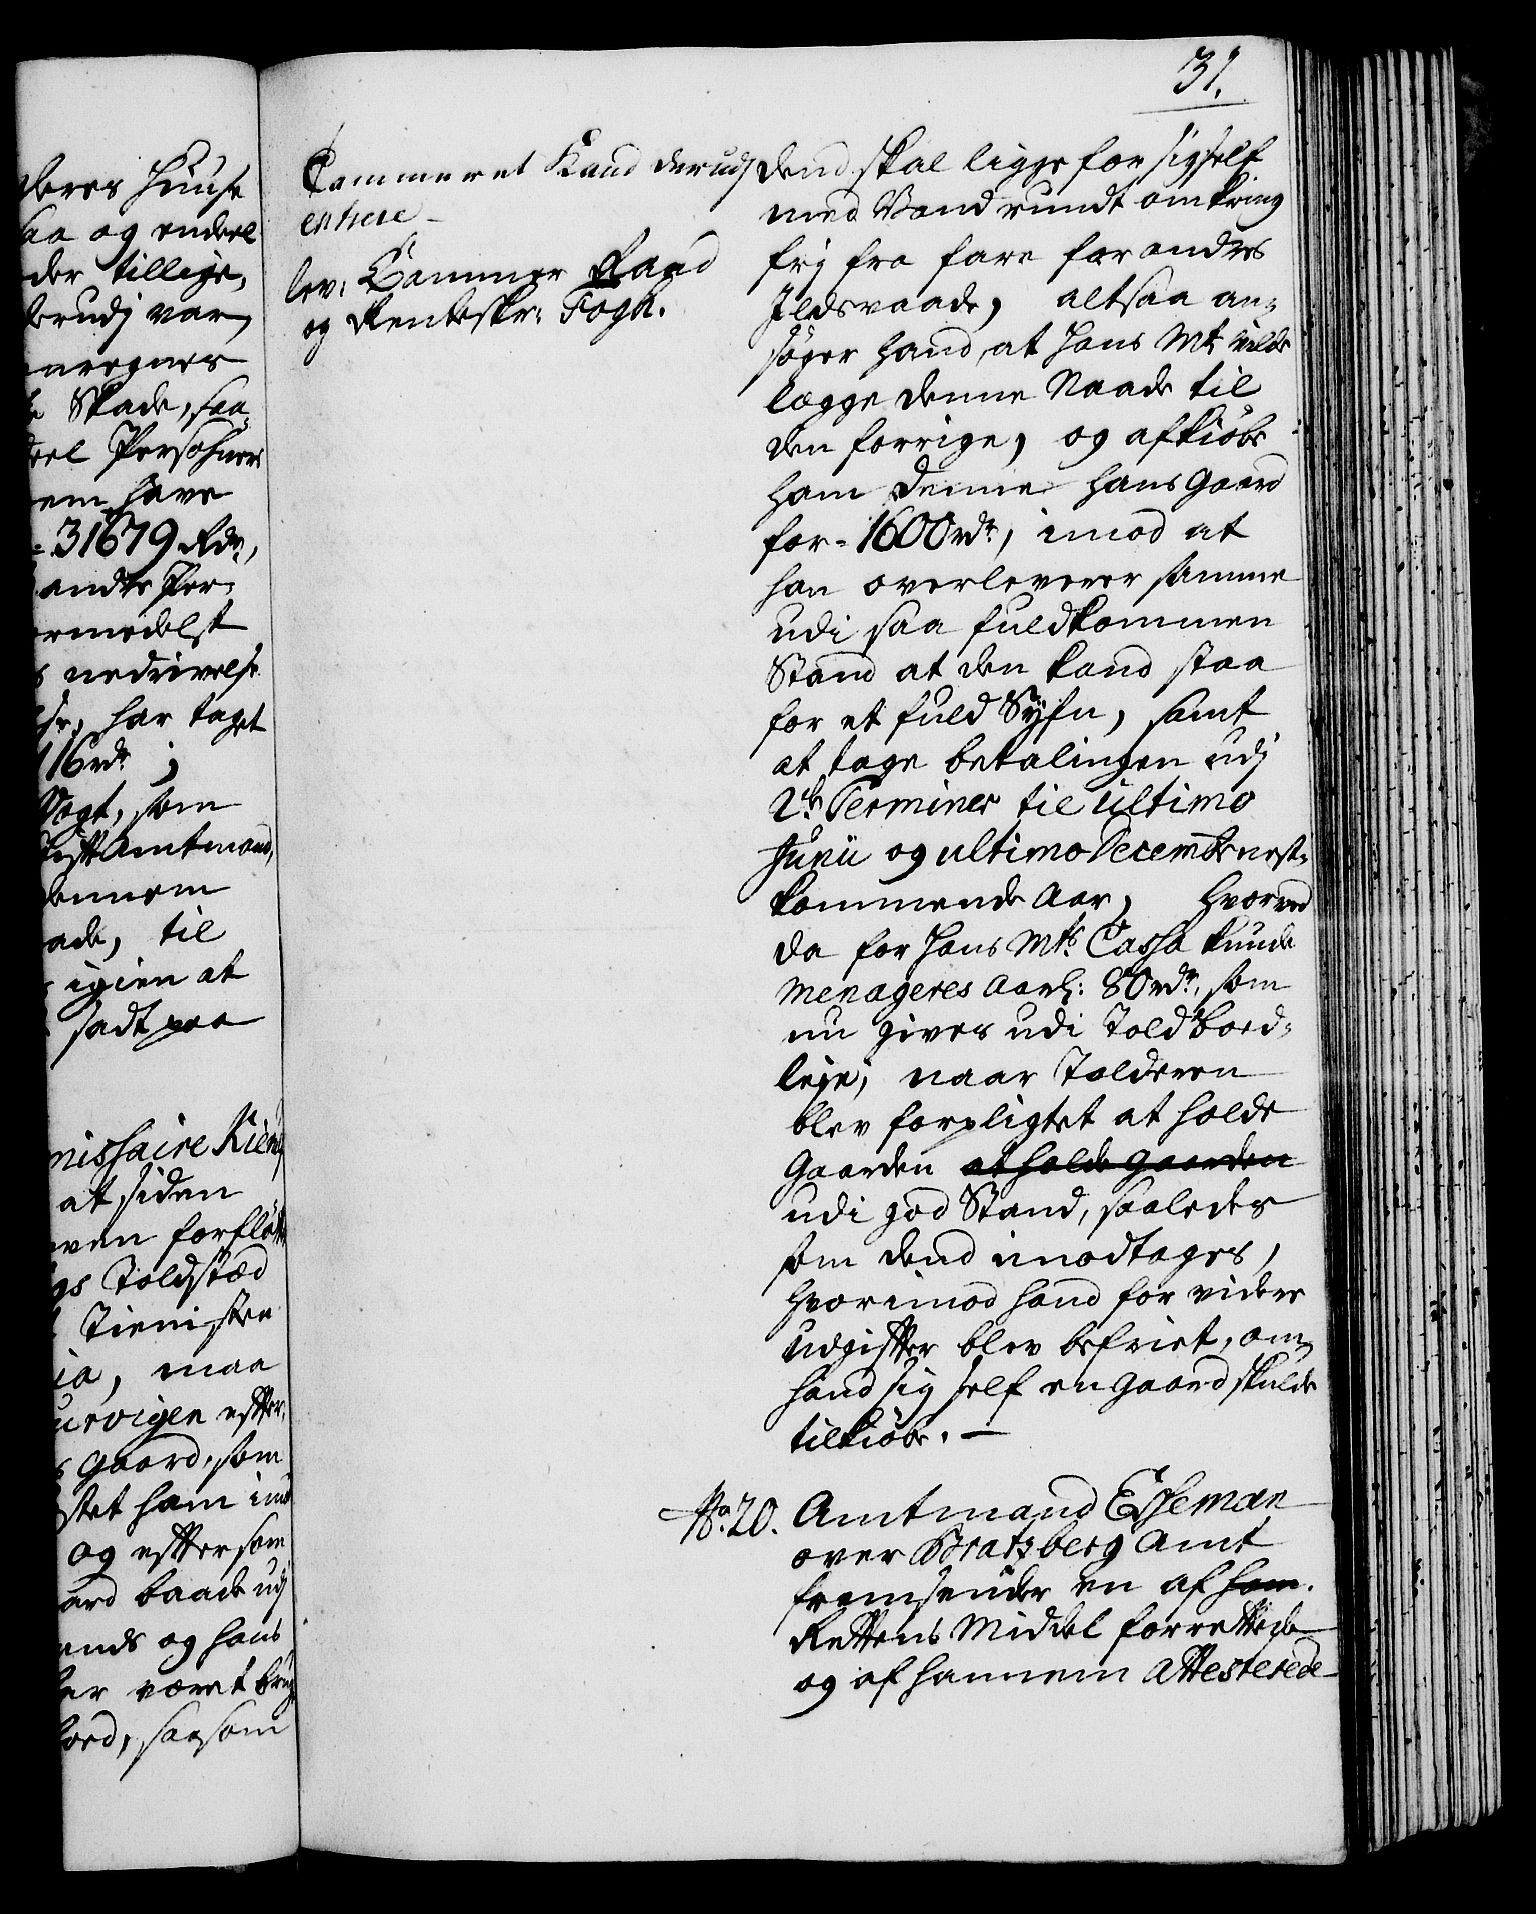 31.
deres Huuse
saa og endeel
der tillige,
derudj var,
Skade, saa
deel Persohners
have
31679 Rdr,
andre Per-
formedelst
nedrivelse
har taget
116 rdr ;
Vogt, som
Stifft Amtmand,
dennem
til
igien at
sadt paa
at siden
Toldstæd
Tienisten
maa
Gaard, som
ham
og efftersom
baade udj
og hans
været brugt
saasom
Cammeret Kand derudj
entrere
lev: Cammer Raad
og Renteskr: Fogh.
dend skal ligge for sig self
med Vand rundt omkring
frj fra fare for andres
Jldsvaade, altsaa an-
søger hand, at Hans Mt vilde
legge denne Naade til
den forrige, og afkiøbe
ham denne hans Gaard
for 1600 rdr, imod at
han overleverer samme
udi saa fuldkommen
Stand at den kand staa
for et fuld Syfn, samt
at tage betalingen udj
2de Terminer til ultimo
Junii og ultimo Decembr nest-
kommende Aar, hvorved
da for Hans Mts Cassa kunde
menageres Aarl: 80 rdr, som
nu gives udi Toldboed-
leje, naar Tolderen
blev forpligtet at holde
Gaarden at holde Gaarden
udi god Stand, saaledes
som dend imodtages,
hvorimod hand for videre
Udgiffter blev befriet, om
hand sig self en Gaard skulde
tilkiøbe. —
No. 20. Amtmand Esseman
over Bratzberg Amt
fremsender en af ham
Rettens Middel forrettede
og af hannem Attesterede